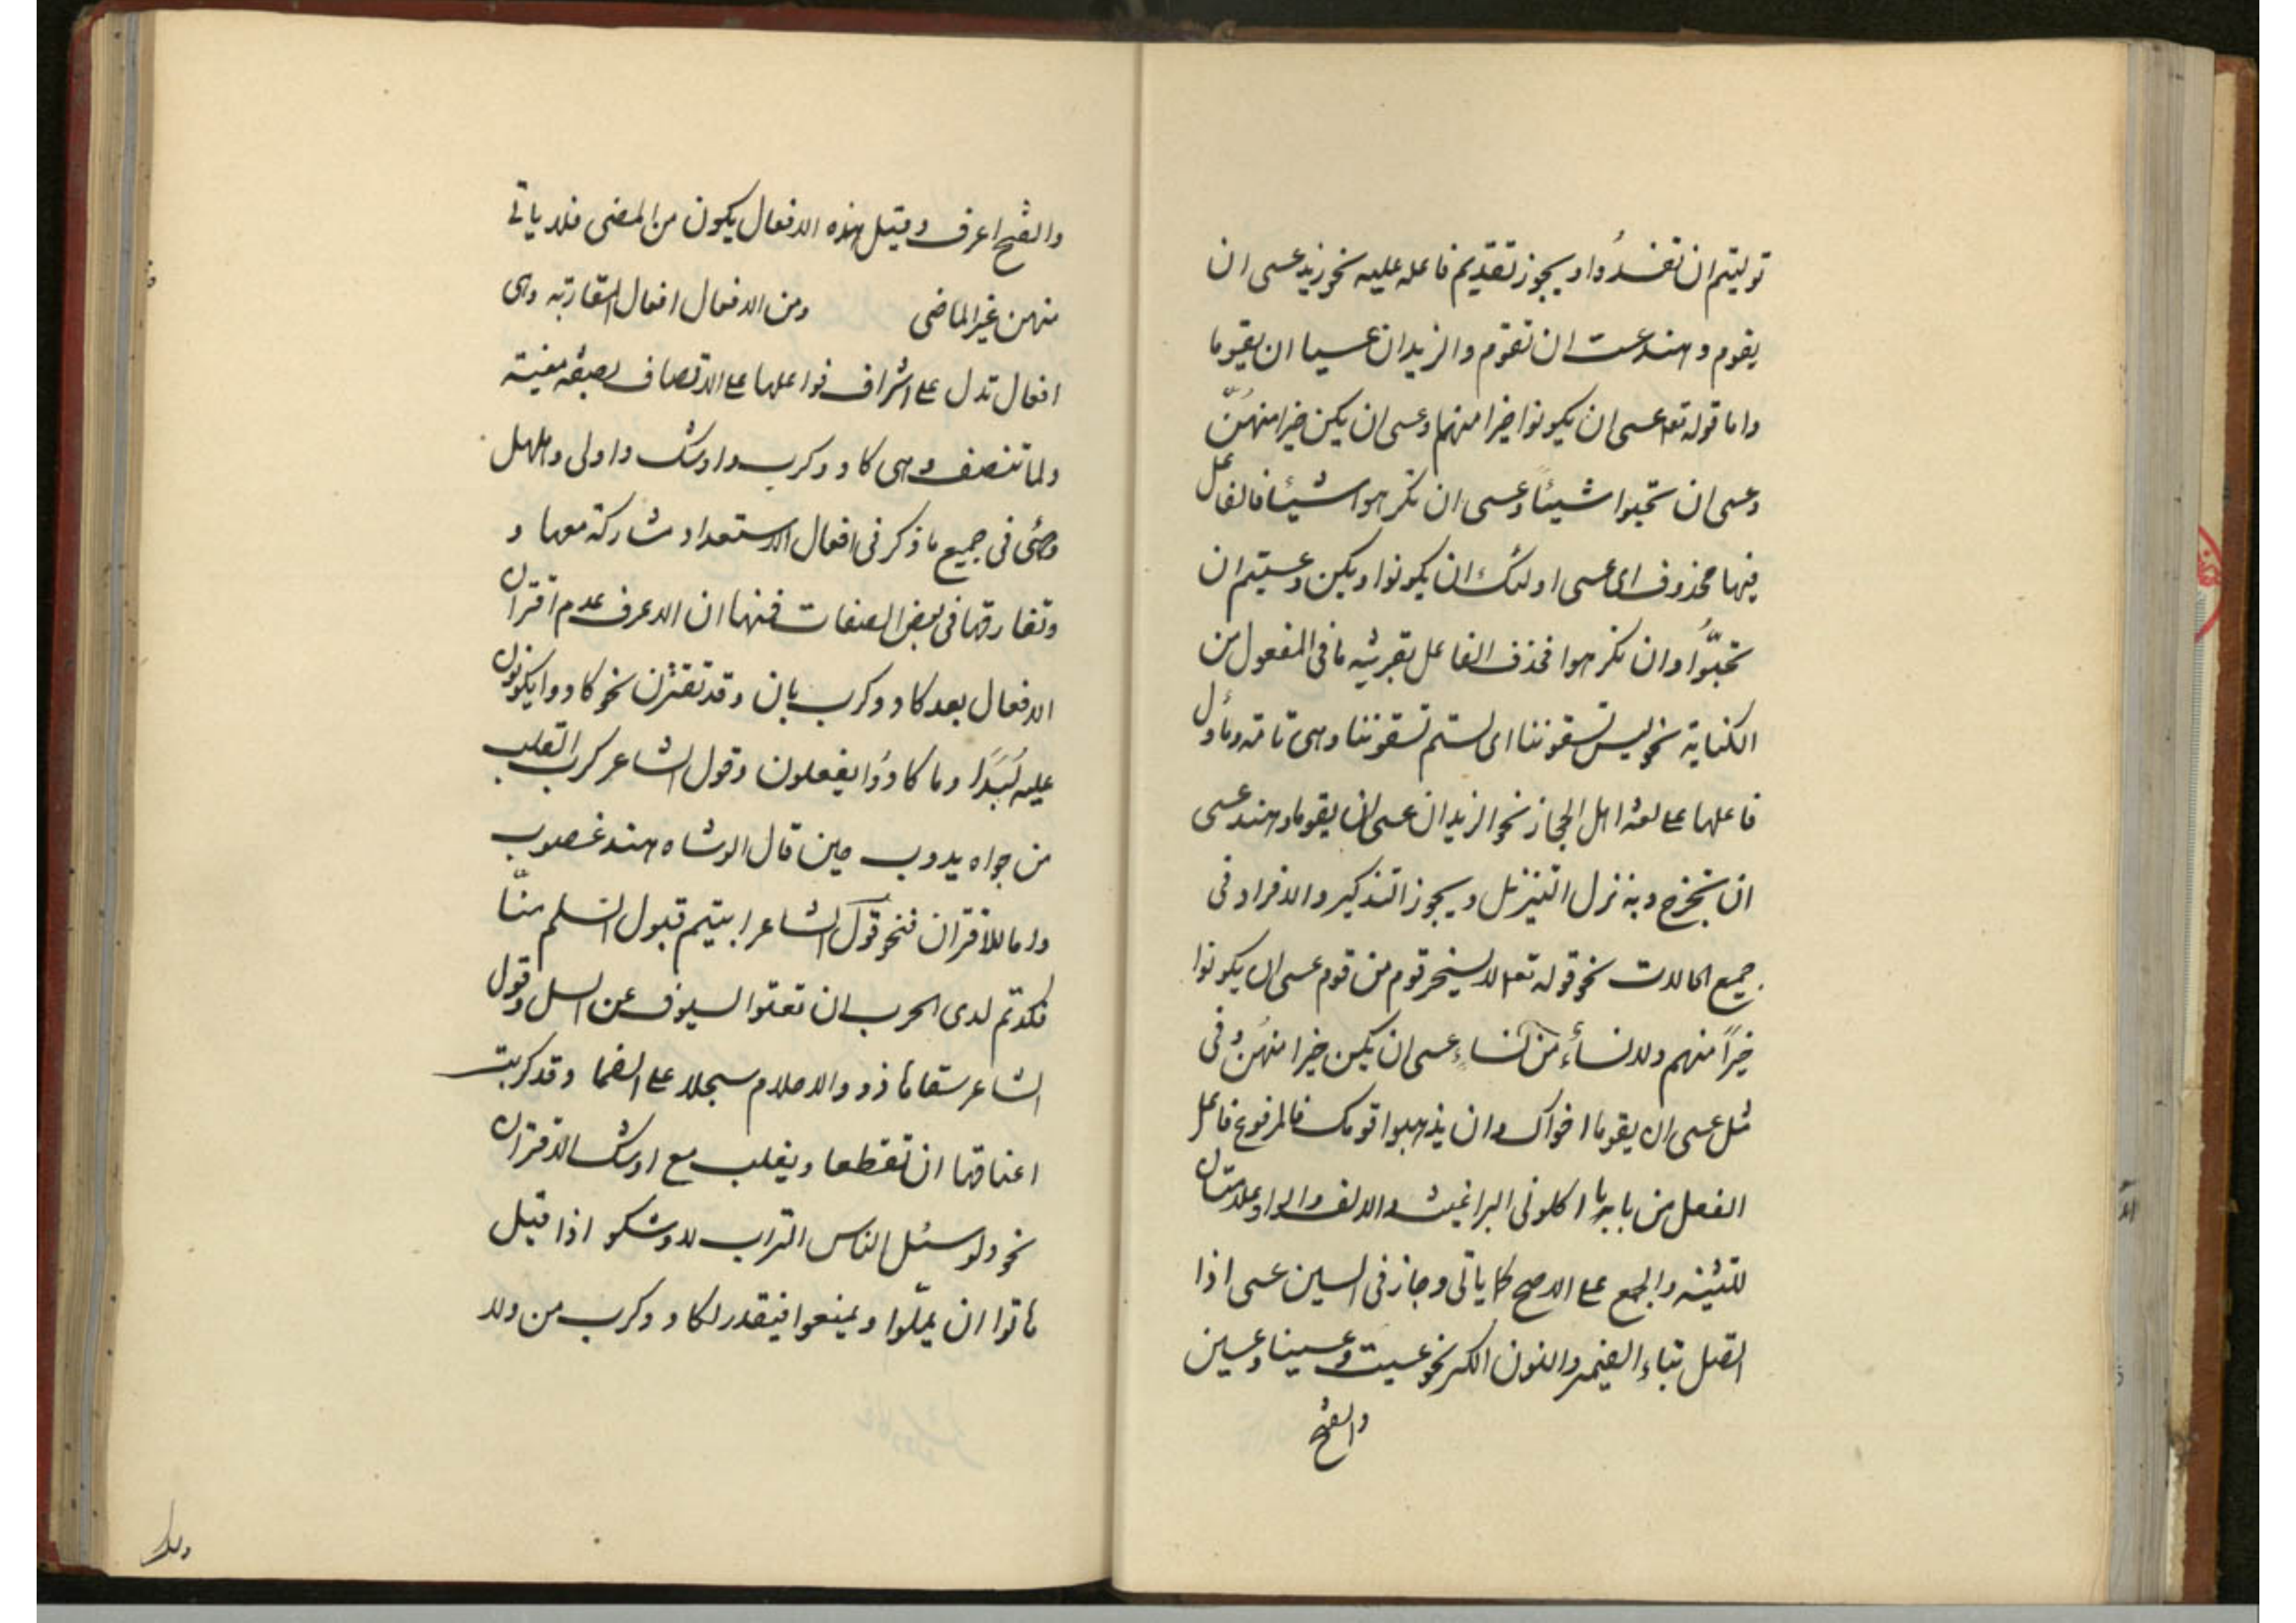 توليتم ان تفسدُوا و يجوز تقديم فاعله عليه نحو زيد عسى ان
يقوم و هند عست ان تقوم والزيدان عسيا ان يقوما
واما قوله تعا عسى ان يكونوا خيرا منهم وعسى ان يكن خيرا منهُنّ
وعسى ان تحبوا شيئاً وعسى ان تكرهوا شيئا فالفاعل
فيها محذوف اى عسى اولئك ان يكونوا ويكن وعسيتم ان
تحبّوُا وان تكرهوا فحذف الفاعل بقرينه ما فى المفعول من
الكناية نحو ليس تسقوننا اى لستم تسقوننا وهى تامة ومأول
فاعلها على لغة اهل الحجاز نحو الزيدان عسى ان يقوما و هند عسى
ان تخرج و به نزل التنزيل و يجوز التذكير والافراد فى
جميع الحالات نحو قوله تعا لا يسخر قوم من قوم عسى ان يكونوا
خيراً منهم ولا نساءٌ من نساءٍ عسى ان يكن خيرا منهُن وفى
مثل عسى ان يقوما اخواك وان يذهبوا قومك فالمرفوع فاعل
الفعل من باب يا اكلونى البراغيث والالف والواو علامتان
للتثينه والجمع على الاصح كما ياتى وجاز فى السين عسى اذا
اتصل بتاء الضمير والنون الكسر نحو عسيت وعسينا وعسين
والفتح
والفتح اعرف وقيل هذه الافعال يكون من المضى فلا ياتى
منهن غير الماضى ومن الافعال افعال المقاربة وهى
افعال تدل على اشراف فواعلها على الاتصاف بصفة معينة
ولما تتصف وهى كاد وكرب واوشك واولى وهلهل
وهى فى جميع ما ذكر فى افعال الاستعداد مشاركة معها و
وتفارقها فى بعض الصفات فمنها ان الاعرف عدم اقتران
الافعال بعد كاد وكرب بان وقد تقترن نحو كادوا يكونون
عليه لُبَدًا وما كادُوا يفعلون وقول الشاعر كرب القلب
من جواه يذوب حين قال الوشاه هند غضوب
واما للاقتران فنحو قول الشاعر ابيتم قبول السلم منّا
فكدتم لدى الحرب ان تغنوا السيوف عن السل وقول
الشاعر سقاها ذوو الاحلام سجلا على الظما وقد كربت
اعناقها ان تقطعا ويغلب مع اوشك الاقتران
نحو ولو سئل الناس التراب لاوشكوا اذا قيل
هاتوا ان يملّوا ويمنعوا فيقدر لكاد وكرب من ولا